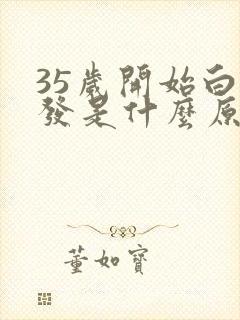 35歲開始白
發是什麼原
董如寶